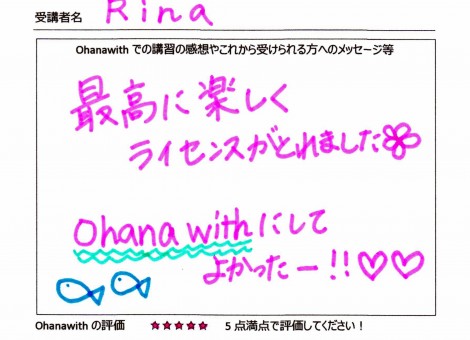 受講者名 Rina
Ohanawith での講習の感想やこれから受けられる方へのメッセージ等
最高に楽しく
ライセンスがとれました
Ohana withにして
よかったー!!♡♡
Ohanawith の評価 ★★★★★ 5 点満点で評価してください！